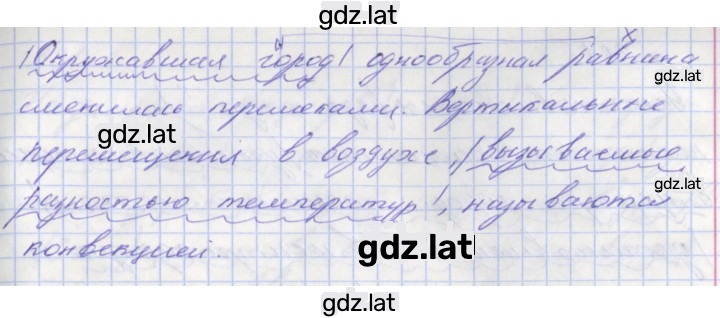 gdz.lat
|Окружавшая город| однообразная равнина
gdz.lat
сменилась перелесками. Вертикальные
gdz.lat
перемещения в воздухе, |вызываемые
gdz.lat
разностью температур|, называются
конвекцией.
gdz.lat
gdz.lat